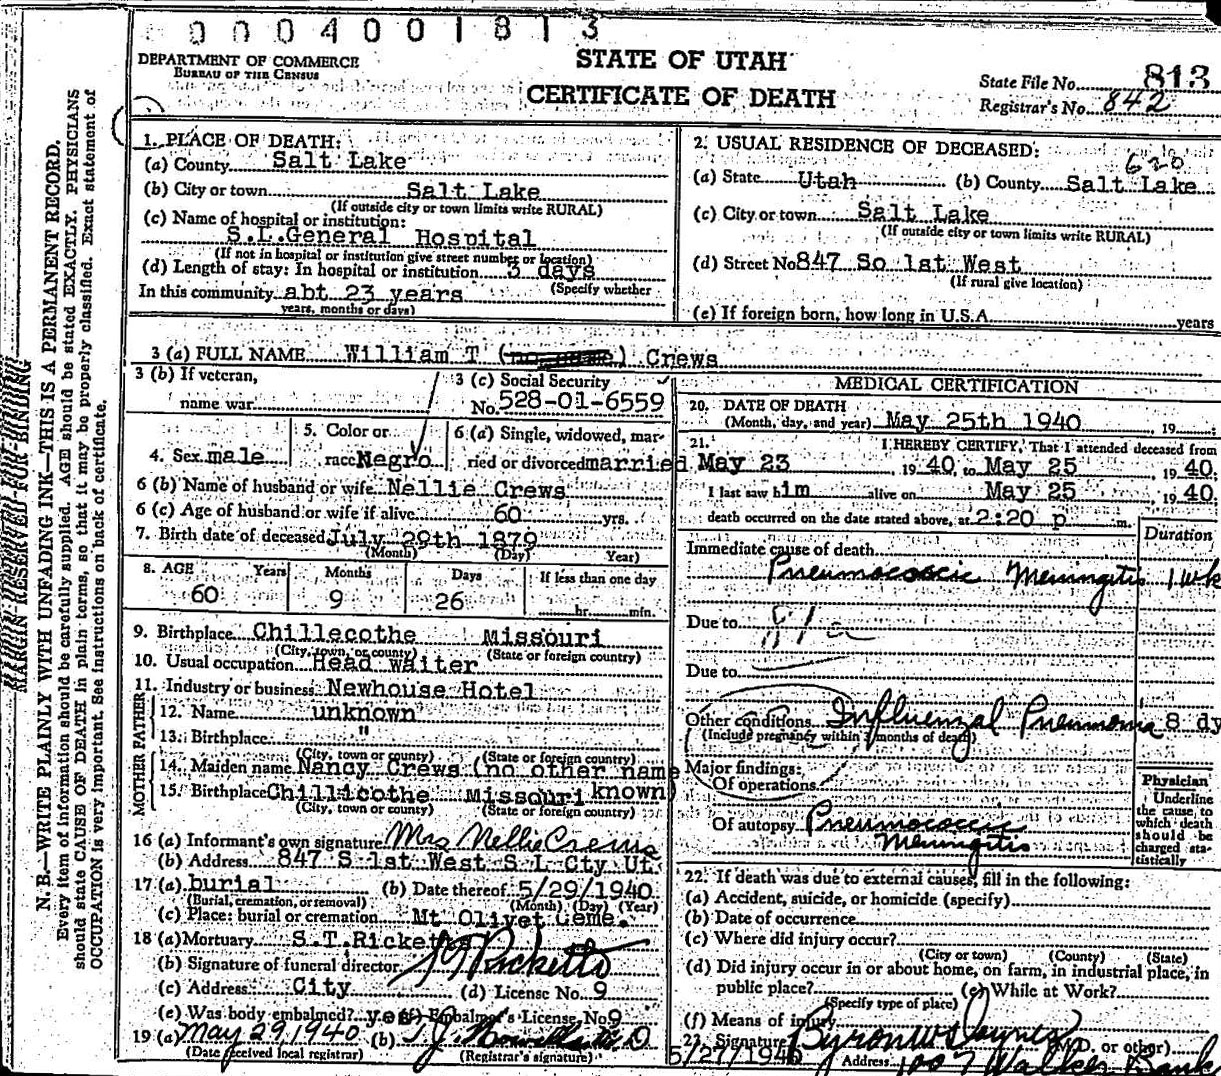 0004001813
DEPARTMENT OF COMMERCE
BUREAU OF THE CENSUS
STATE OF UTAH
CERTIFICATE OF DEATH
State File No. 813
Registrar's No. 842
MARGIN RESERVED FOR BINDING
N. B.—WRITE PLAINLY WITH UNFADING INK—THIS IS A PERMANENT RECORD.
Every item of information should be carefully supplied. AGE should be stated EXACTLY. PHYSICIANS
should state CAUSE OF DEATH in plain terms, so that it may be properly classified. Exact statement of
OCCUPATION is very important. See instructions on back of certificate.
1. PLACE OF DEATH:
(a) County Salt Lake
(b) City or town Salt Lake
(If outside city or town limits write RURAL)
(c) Name of hospital or institution:
S.L.General Hospital
(If not in hospital or institution give street number or location)
(d) Length of stay: In hospital or institution 3 days
(Specify whether
In this community abt 23 years
years, months or days)
2. USUAL RESIDENCE OF DECEASED:
620
(a) State Utah (b) County Salt Lake
(c) City or town Salt Lake
(If outside city or town limits write RURAL)
(d) Street No 847 So 1st West
(If rural give location)
(e) If foreign born, how long in U.S.A. years
3 (a) FULL NAME William T (no name) Crews
3 (b) If veteran,
name war
3 (c) Social Security
No. 528-01-6559
4. Sex male
5. Color or
race Negro
6 (a) Single, widowed, mar-
ried or divorced married
6 (b) Name of husband or wife Nellie Crews
6 (c) Age of husband or wife if alive 60 yrs.
7. Birth date of deceased July 29th 1879
(Month) (Day) Year)
8. AGE Years Months Days If less than one day
60 9 26 hr. min.
9. Birthplace Chillecothe Missouri
(City, town, or county) (State or foreign country)
10. Usual occupation Head Waiter
11. Industry or business Newhouse Hotel
FATHER
12. Name unknown
13. Birthplace "
(City, town or county) (State or foreign country)
MOTHER
14. Maiden name Nancy Crews (no other name
known)
15. Birthplace Chillicothe Missouri
(City, town or county) (State or foreign country)
16 (a) Informant's own signature Mrs Nellie Crews
(b) Address 847 S 1st West S L Cty Ut.
17 (a) burial (b) Date thereof 5/29/1940
(Burial, cremation, or removal) (Month) (Day) (Year)
(c) Place: burial or cremation Mt Olivet Ceme.
18 (a) Mortuary S.T.Ricketts
(b) Signature of funeral director Ricketts
(c) Address City (d) License No. 9
(e) Was body embalmed? yes (f) Embalmer's License No 9
19 (a) May 29, 1940 (b)
(Date received local registrar) (Registrar's signature)
MEDICAL CERTIFICATION
20. DATE OF DEATH
(Month, day, and year) May 25th 1940, 19
21. I HEREBY CERTIFY, That I attended deceased from
May 23 1940, to May 25, 1940.
I last saw him alive on May 25, 1940.
death occurred on the date stated above, at 2:20 p m.
Duration
Immediate cause of death
Pneumococcic Meningitis 1 wk
Due to 81a
Due to
Other conditions Influenzal Pneumonia 8 dy
(Include pregnancy within 3 months of death)
Major findings:
Of operations
Of autopsy Pneumococcic
Meningitis
Physician
Underline
the cause, to
which death
should be
charged sta-
tistically
22. If death was due to external causes, fill in the following:
(a) Accident, suicide, or homicide (specify)
(b) Date of occurrence
(c) Where did injury occur?
(City or town) (County) (State)
(d) Did injury occur in or about home, on farm, in industrial place, in
public place? (e) While at Work?
(Specify type of place)
(f) Means of injury
23. Signature Byron W (M.D. or other)
5/27/1940 Address 1007 Walker Bank